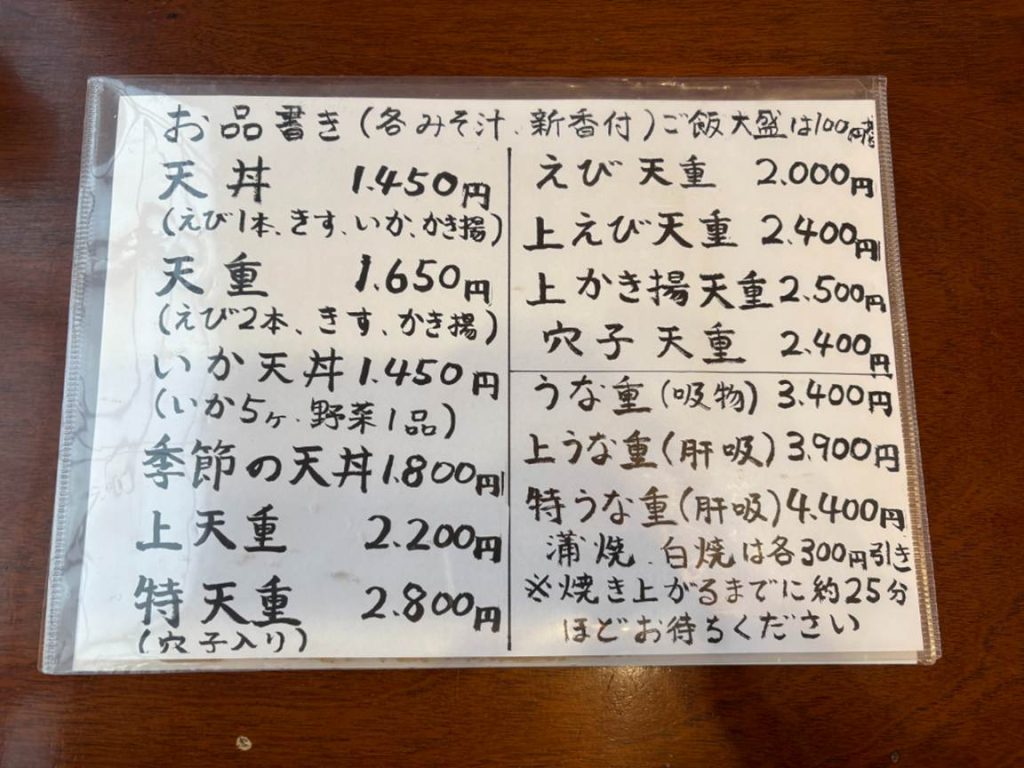 お品書き(各みそ汁、新香付)ご飯大盛は100円増
天丼 1.450円
(えび1本、きす、いか、かき揚)
天重 1.650円
(えび2本、きす、かき揚)
いか天丼 1.450円
(いか5ヶ、野菜1品)
季節の天丼 1.800円
上天重 2.200円
特天重 2.800円
(穴子入り)
えび天重 2.000円
上えび天重 2.400円
上かき揚天重 2.500円
穴子天重 2.400円
うな重(吸物) 3.400円
上うな重(肝吸) 3.900円
特うな重(肝吸) 4.400円
蒲焼、白焼は各300円引き
※焼き上がるまでに約25分
ほどお待ちください